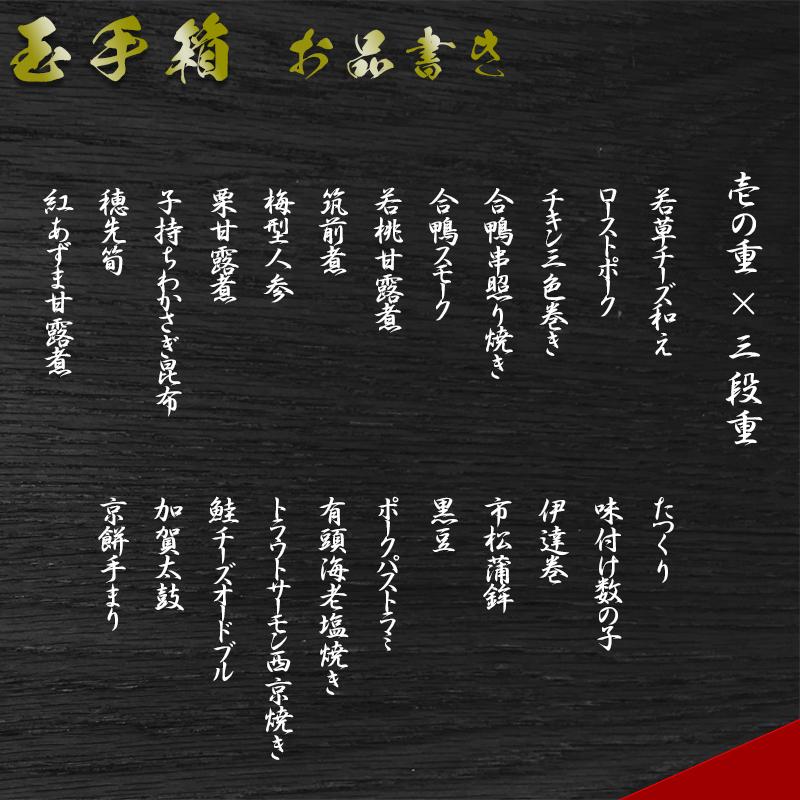 玉手箱 お品書き
壱の重 × 三段重
若草チーズ和え
ローストポーク
チキン三色巻き
合鴨串照り焼き
合鴨スモーク
若桃甘露煮
筑前煮
梅型人参
栗甘露煮
子持ちわかさぎ昆布
穂先筍
紅あずま甘露煮
たつくり
味付け数の子
伊達巻
市松蒲鉾
黒豆
ポークパストラミ
有頭海老塩焼き
トラウトサーモン西京焼き
鮭チーズオードブル
加賀太鼓
京餅手まり